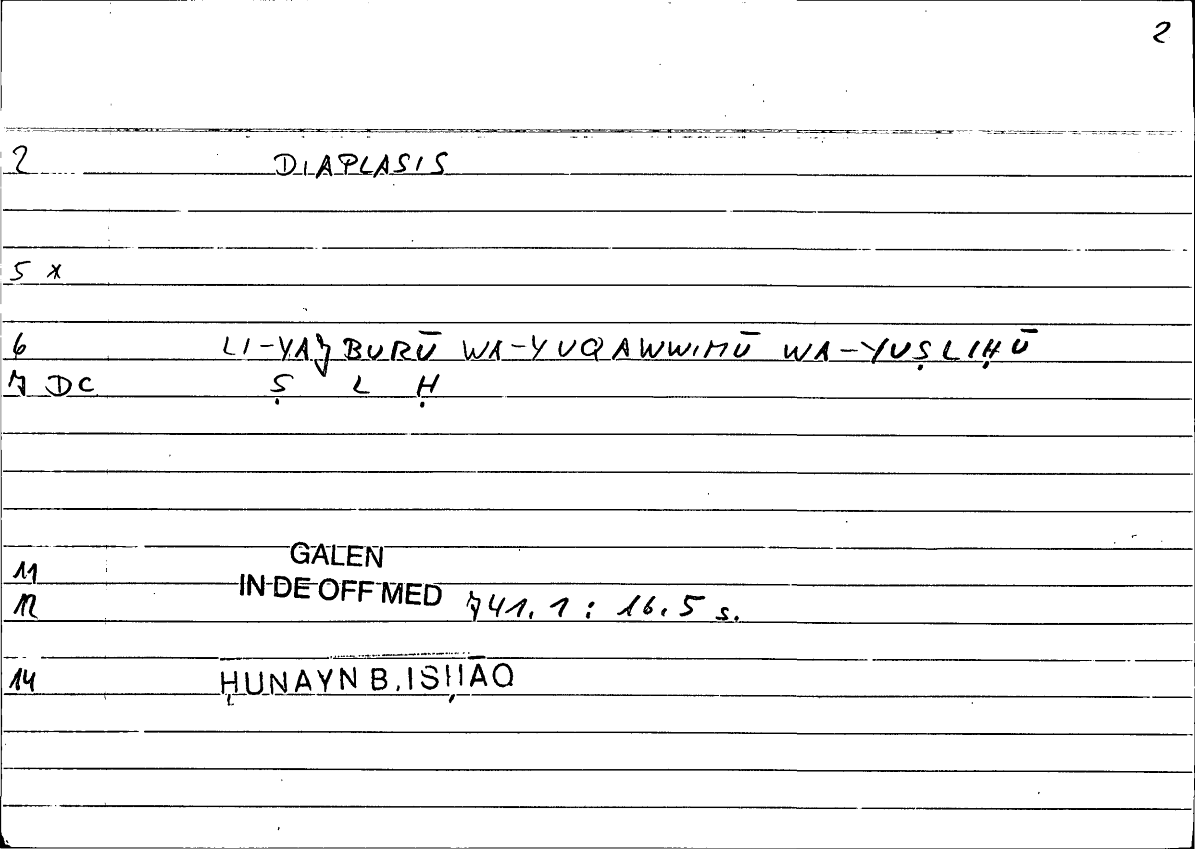 2
2 DIAPLASIS
5 *
6 LI-YAǦBURŪ WA-YUQAWWIMŪ WA-YUṢLIḤŪ
7 DC Ṣ L Ḥ
11 GALEN
12 IN DE OFF MED 741.1 : 16.5 s.
14 ḤUNAYN B. ISḤĀQ